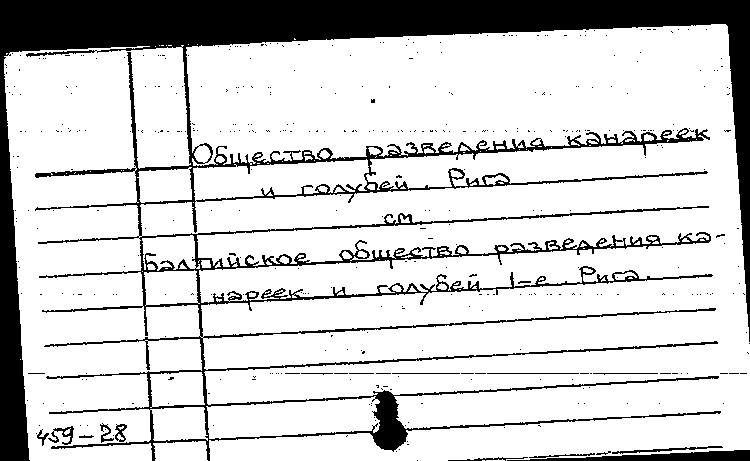 Общество разведения канареек
и голубей. Рига
см.
Балтийское общество разведения ка-
нареек и голубей, 1-е. Рига.
459-28